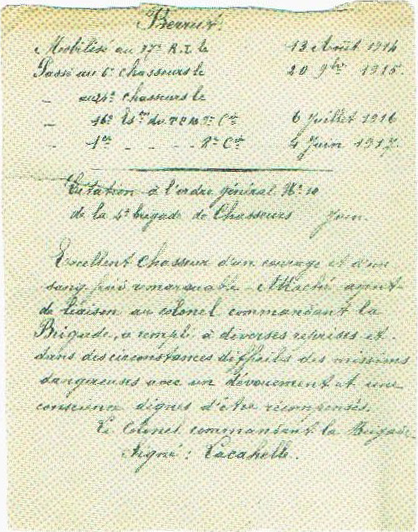 Berrux
Mobilisé au 17e R.I. le 13 Août 1914
Passé au 6e Chasseurs le 20 9bre 1915.
_ au 24e Chasseurs le
_ 16e du T 6 Juillet 1916
_ 1er _ _ _ _ 8e Cie 4 Juin 1917.
Citation à l'ordre général No 10
de la 4e brigade de Chasseurs Juin.
Excellent Chasseur d'un courage et d'un
sang froid remarquable. Attaché agent
de liaison au colonel commandant la
Brigade, a rempli à diverses reprises et
dans des circonstances difficiles des missions
dangereuses avec un dévouement et une
conscience dignes d'être récompensés.
Le Colonel commandant la Brigade
Signé : Lacahelle.